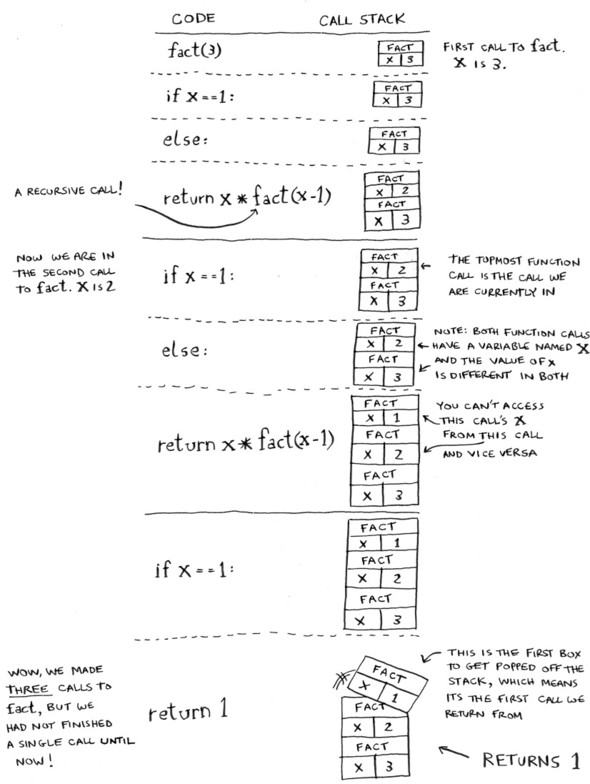 CODE
CALL STACK
fact(3)
FACT
X 3
FIRST CALL TO fact.
X IS 3.
if x==1:
FACT
X 3
else:
FACT
X 3
A RECURSIVE CALL!
return x * fact(x-1)
FACT
X 2
FACT
X 3
NOW WE ARE IN
THE SECOND CALL
to fact. X IS 2
if x==1:
FACT
X 2
FACT
X 3
THE TOPMOST FUNCTION
CALL IS THE CALL WE
ARE CURRENTLY IN
else:
FACT
X 2
FACT
X 3
NOTE: BOTH FUNCTION CALLS
HAVE A VARIABLE NAMED X
AND THE VALUE OF X
IS DIFFERENT IN BOTH
return x * fact(x-1)
FACT
X 1
FACT
X 2
FACT
X 3
YOU CAN'T ACCESS
THIS CALL'S X
FROM THIS CALL
AND VICE VERSA
if x==1:
FACT
X 1
FACT
X 2
FACT
X 3
WOW, WE MADE
THREE CALLS TO
fact, BUT WE
HAD NOT FINISHED
A SINGLE CALL UNTIL
NOW!
return 1
FACT
X 1
FACT
X 2
FACT
X 3
THIS IS THE FIRST BOX
TO GET POPPED OFF THE
STACK, WHICH MEANS
ITS THE FIRST CALL WE
RETURN FROM
RETURNS 1